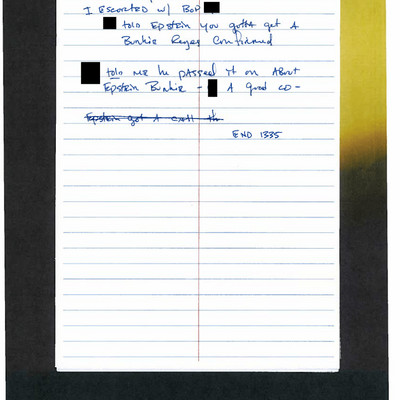 I escorted w/ BOP
told Epstein you gotta get A
Bunkie Reyes Confirmed
told me he passed it on About
Epstein Bunkie - A good co-
Epstein got A
END 1335